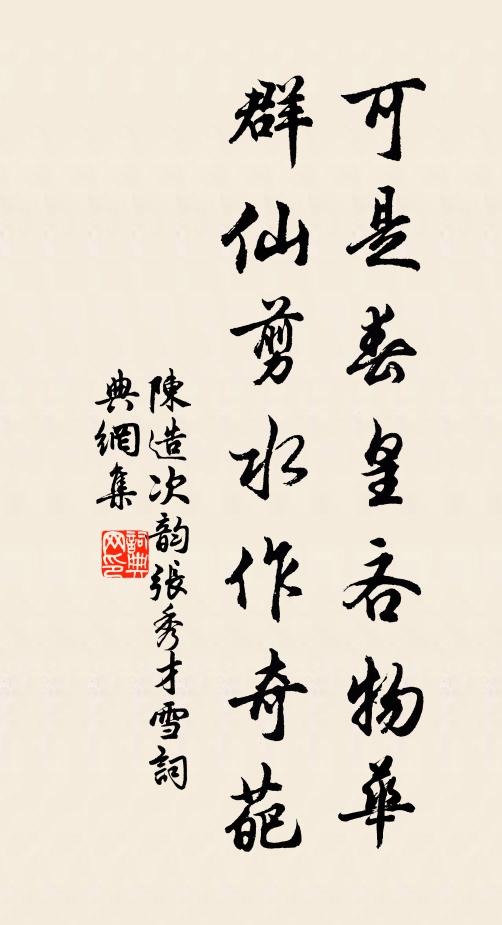 可是春皇吝物華
群仙剪水作奇葩
陳造次韵張秀才雪詞
典網集
詞典
网印